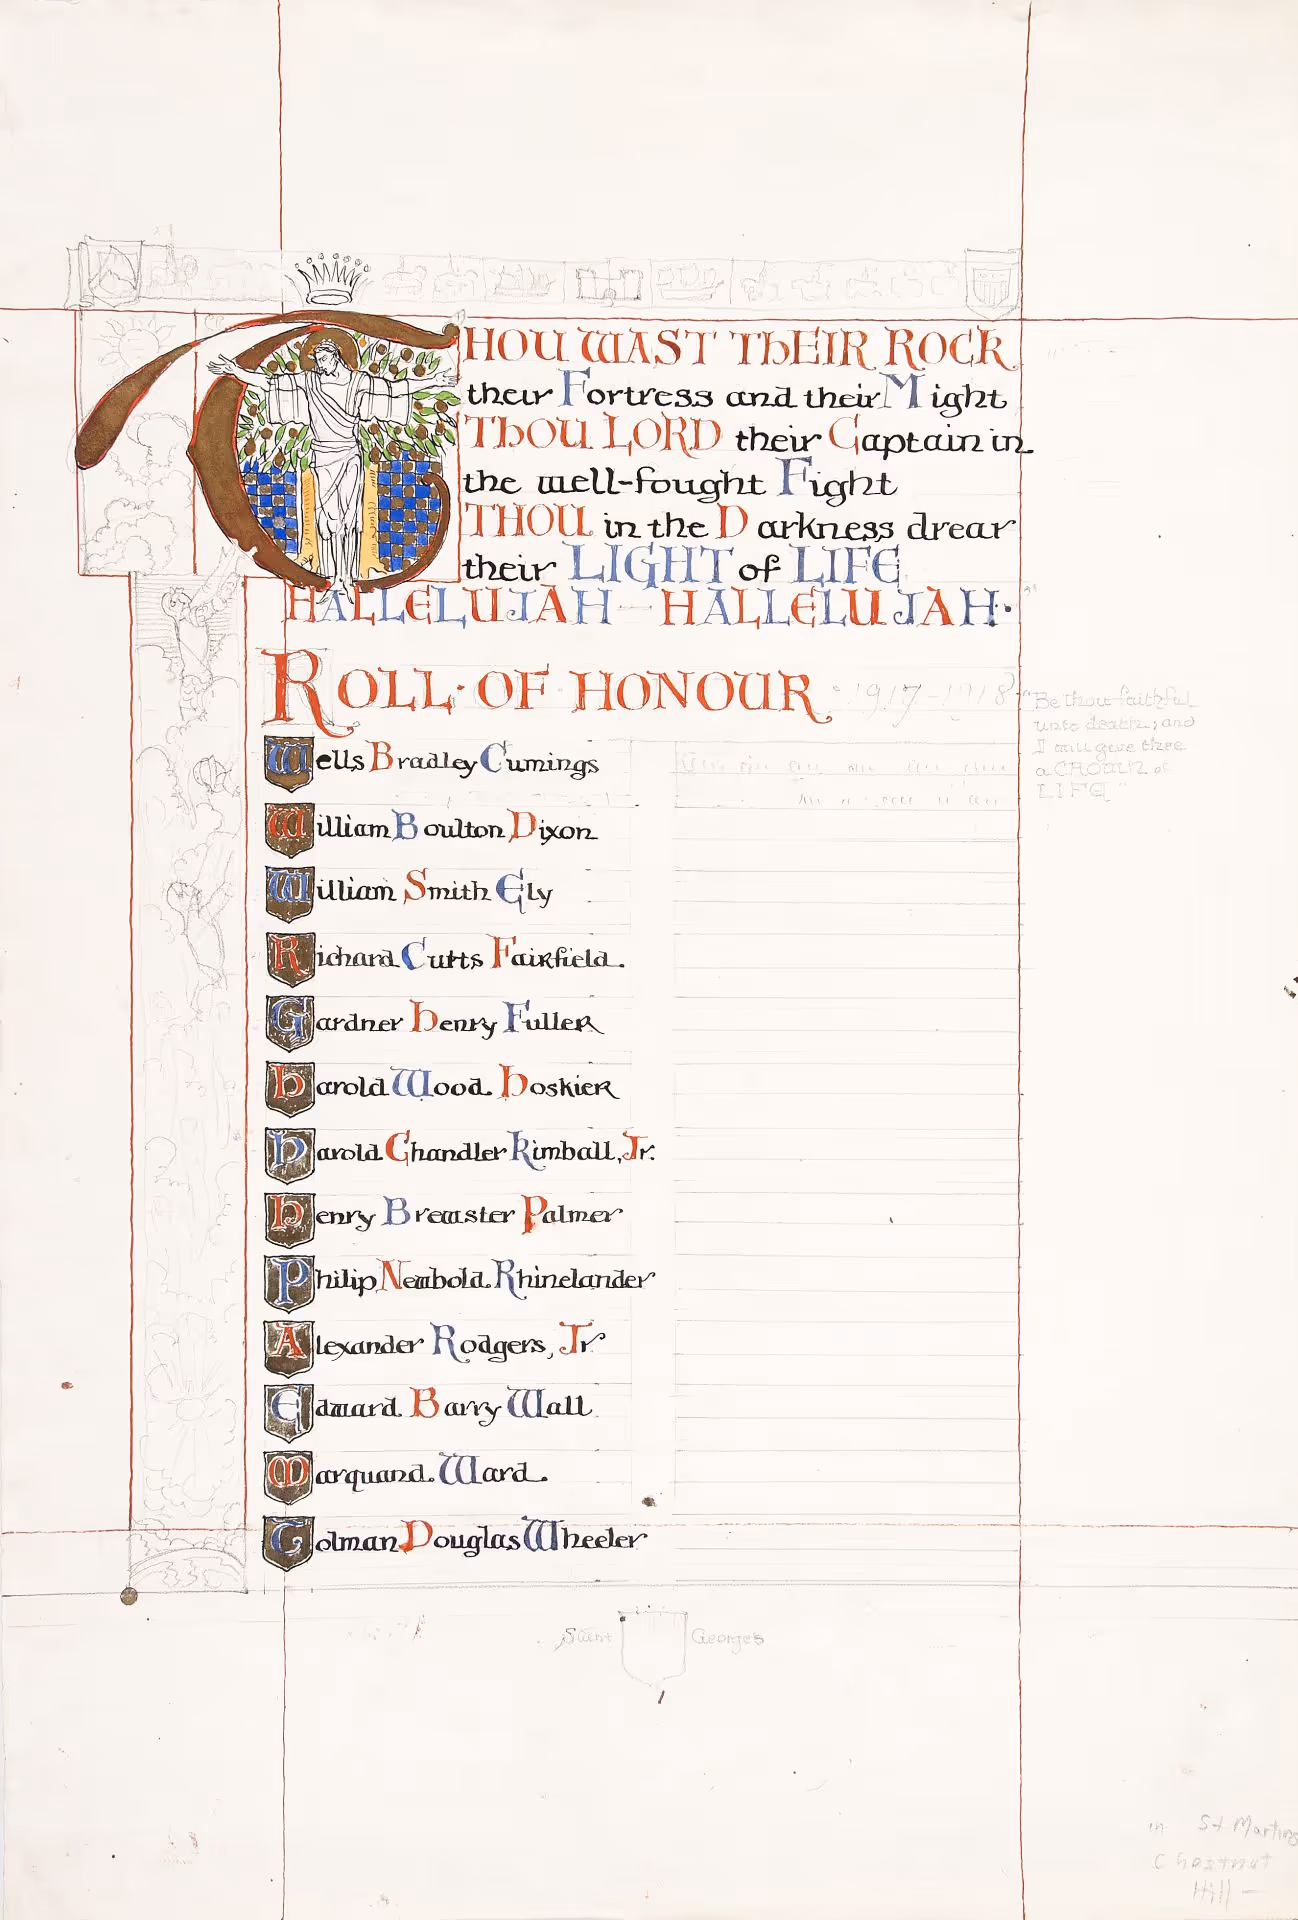 THOU WAST THEIR ROCK
their Fortress and their Might
THOU LORD their Captain in
the well-fought Fight
THOU in the Darkness drear
their LIGHT of LIFE
HALLELUJAH — HALLELUJAH·
ROLL·OF·HONOUR·1917-1918
"Be thou faithful
unto death; and
I will give thee
a CROWN of
LIFE"
Wells Bradley Cumings
William Boulton Dixon
William Smith Ely
Richard Cutts Fairfield.
Gardner Henry Fuller
Harold Wood Hoskier
Harold Chandler Kimball, Jr.
Henry Brewster Palmer
Philip Newbold Rhinelander
Alexander Rodgers, Jr
Edward Barry Wall
Marquand Ward.
Colman Douglas Wheeler
Saint Georges
in St Martins
Chestnut
Hill —